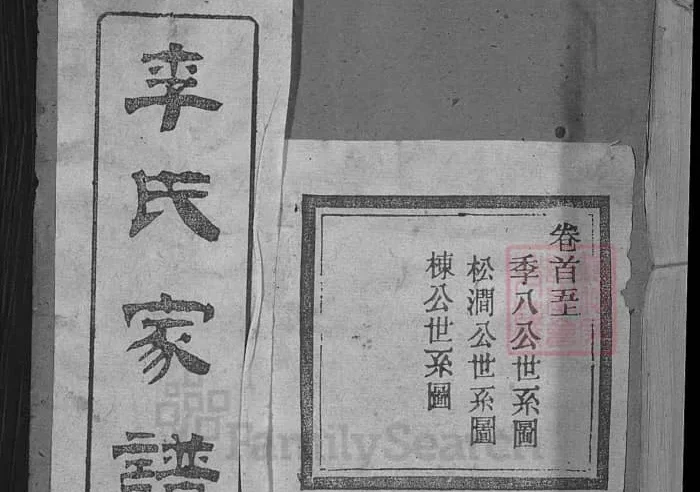 李氏家譜
卷首五上
季八公世系圖
松澗公世系圖
棟公世系圖
FamilySearch